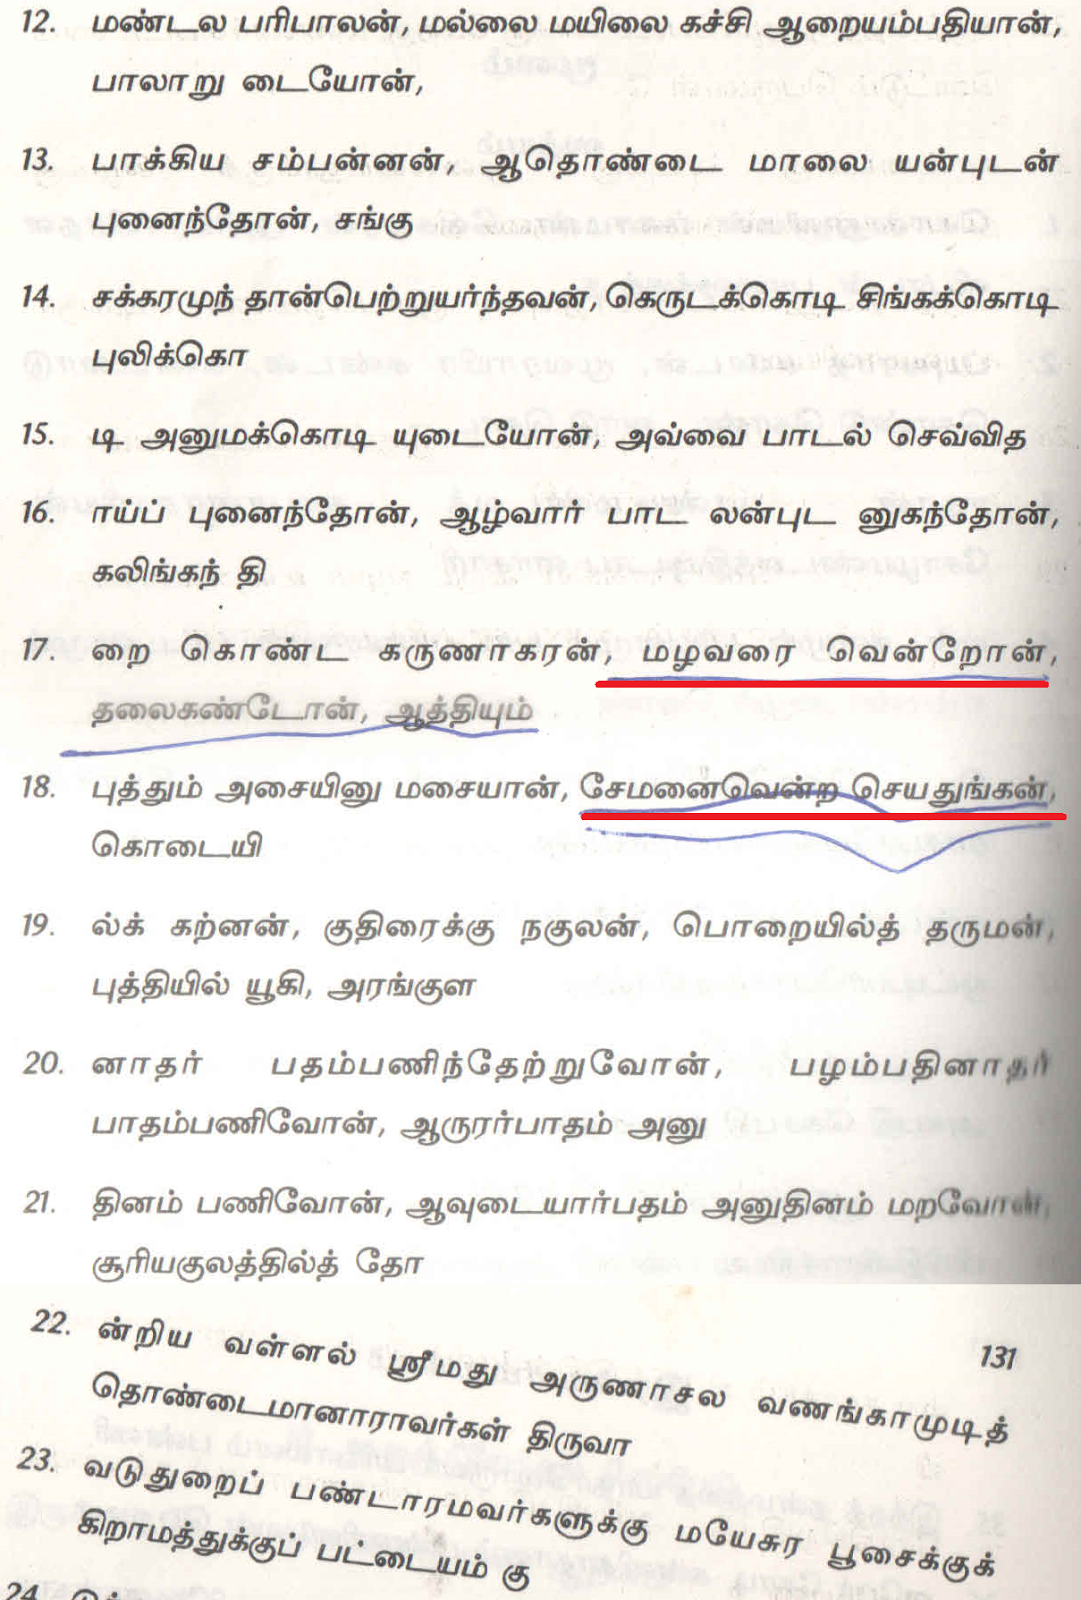 12. மண்டல பரிபாலன், மல்லை மயிலை கச்சி ஆறையம்பதியான்,
பாலாறு டையோன்,
13. பாக்கிய சம்பன்னன், ஆதொண்டை மாலை யன்புடன்
புனைந்தோன், சங்கு
14. சக்கரமுந் தான்பெற்றுயர்ந்தவன், கெருடக்கொடி சிங்கக்கொடி
புலிக்கொ
15. டி அனுமக்கொடி யுடையோன், அவ்வை பாடல் செவ்வித
16. ாய்ப் புனைந்தோன், ஆழ்வார் பாட லன்புட னுகந்தோன்,
கலிங்கந் தி
17. றை கொண்ட கருணாகரன், மழவரை வென்றோன்,
தலைகண்டோன், ஆத்தியும்
18. புத்தும் அசையினு மசையான், சேமனைவென்ற செயதுங்கன்,
கொடையி
19. ல்க் கற்னன், குதிரைக்கு நகுலன், பொறையில்த் தருமன்,
புத்தியில் யூகி, அரங்குள
20. னாதர் பதம்பணிந்தேற்றுவோன், பழம்பதினாதர்
பாதம்பணிவோன், ஆருரர்பாதம் அனு
21. தினம் பணிவோன், ஆவுடையார்பதம் அனுதினம் மறவோன்,
சூரியகுலத்தில்த் தோ
131
22. ன்றிய வள்ளல் ஸ்ரீமது அருணாசல வணங்காமுடித்
தொண்டைமானாராவர்கள் திருவா
23. வடுதுறைப் பண்டாரமவர்களுக்கு மயேசுர பூசைக்குக்
கிறாமத்துக்குப் பட்டையம் கு
24.